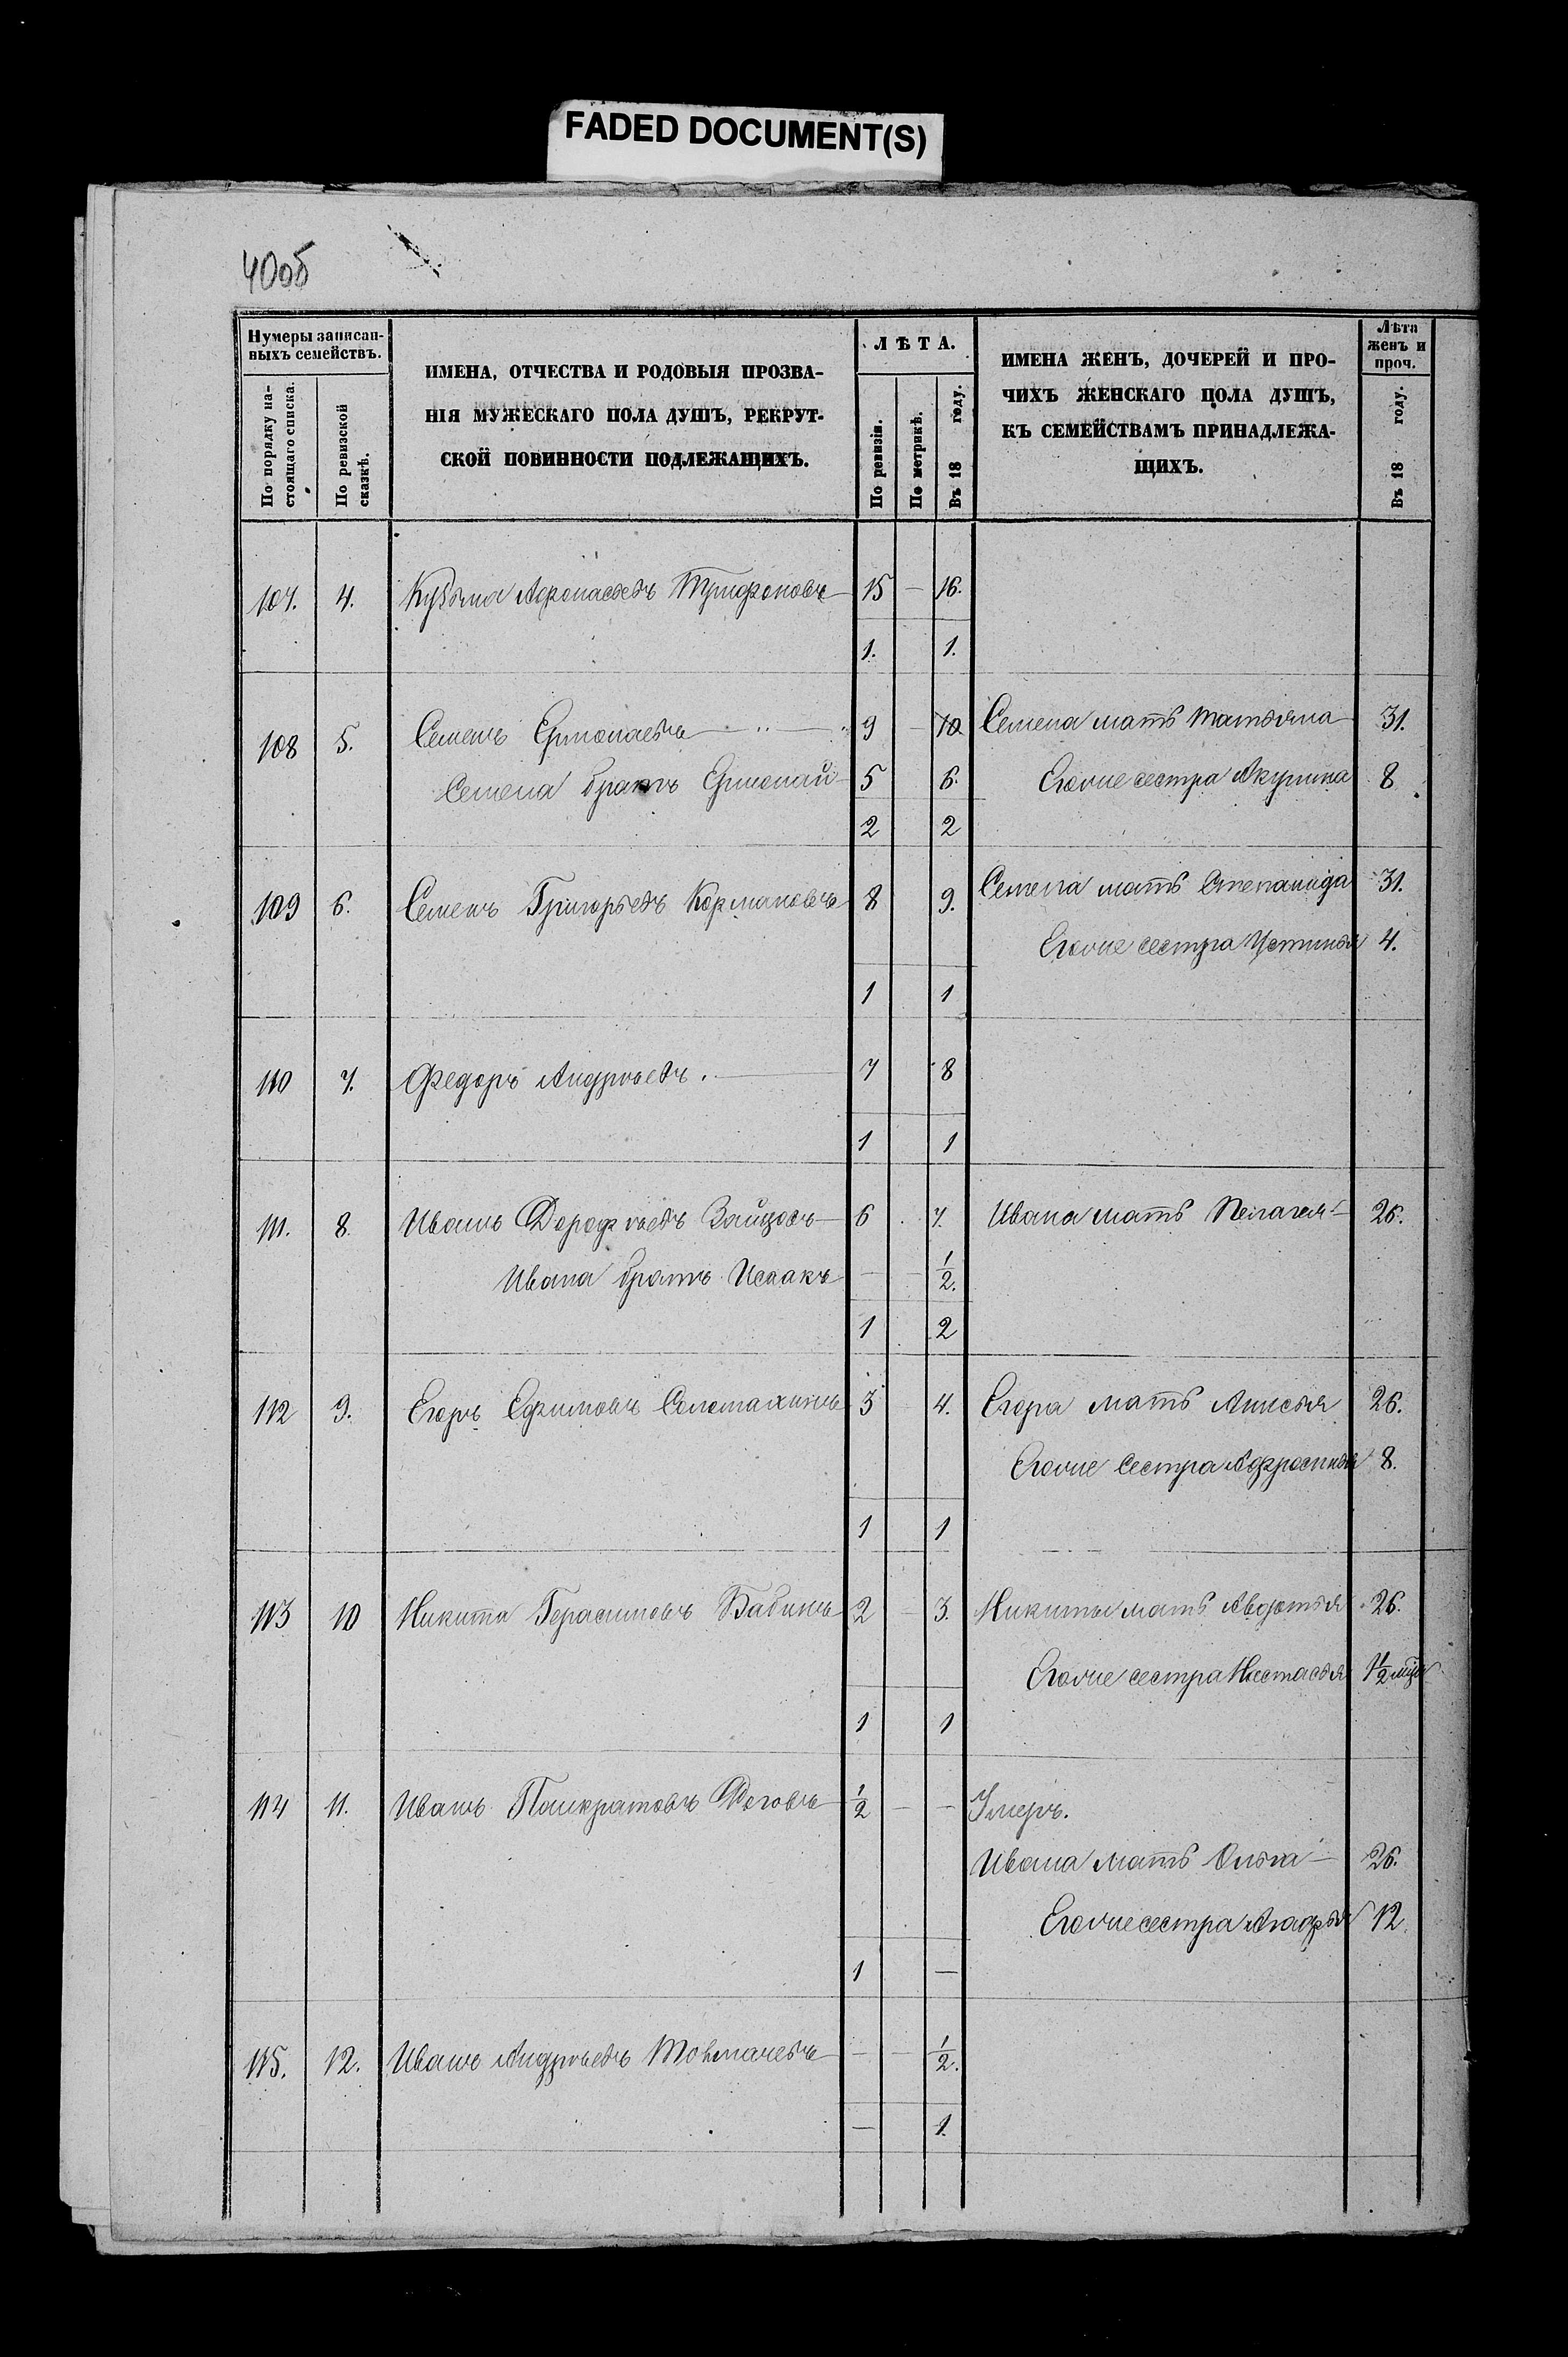 FADED DOCUMENT(S)
40об
Нумеры записан-
ныхъ семействъ.
По порядку на-
стоящаго списка.
По ревизской
сказкѣ.
ИМЕНА, ОТЧЕСТВА И РОДОВЫЯ ПРОЗВА-
НІЯ МУЖЕСКАГО ПОЛА ДУШЪ, РЕКРУТ-
СКОЙ ПОВИННОСТИ ПОДЛЕЖАЩИХЪ.
ЛѢТА.
По ревизіи.
По метрикѣ.
Въ 18 году.
ИМЕНА ЖЕНЪ, ДОЧЕРЕЙ И ПРО-
ЧИХЪ ЖЕНСКАГО ПОЛА ДУШЪ,
КЪ СЕМЕЙСТВАМЪ ПРИНАДЛЕЖА-
ЩИХЪ.
Лѣта
женъ и
проч.
Въ 18 году.
107. 4. Кузьма Афонасьевъ Трифоновъ 15 — 16.
1. 1.
108 5. Семенъ Ермолаевъ — " — 9 — 10 Семена мать Татьяна 31.
Семена братъ Ермолай 5 6. Его же сестра Акулина 8
2 2
109 6. Семенъ Григорьевъ Кормановъ 8 9. Семена мать Степанида 31.
Его же сестра Устинья 4.
1 1
110 7. Федоръ Андреевъ. 7 8
1 1
111. 8. Иванъ Дорофѣевъ Зайцовъ 6 7. Ивана мать Пелагея 26.
Ивана братъ Исаакъ — — 1/2.
1 2
112 9. Егоръ Ефимовъ Соломахинъ 3 4. Егора мать Анисья 26.
Его же сестра Афросинья 8.
1 1
113 10 Никита Герасимовъ Бабинъ 2 — 3. Никиты мать Авдотья 26.
Его же сестра Настасья 1/2 мца
1 1
114 11. Иванъ Панкратовъ 1/2 — — Умеръ.
Ивана мать Ольга 26.
Его же сестра Агафья 12.
1 —
115. 12. Иванъ Андреевъ Толмачевъ — — 1/2.
— 1.